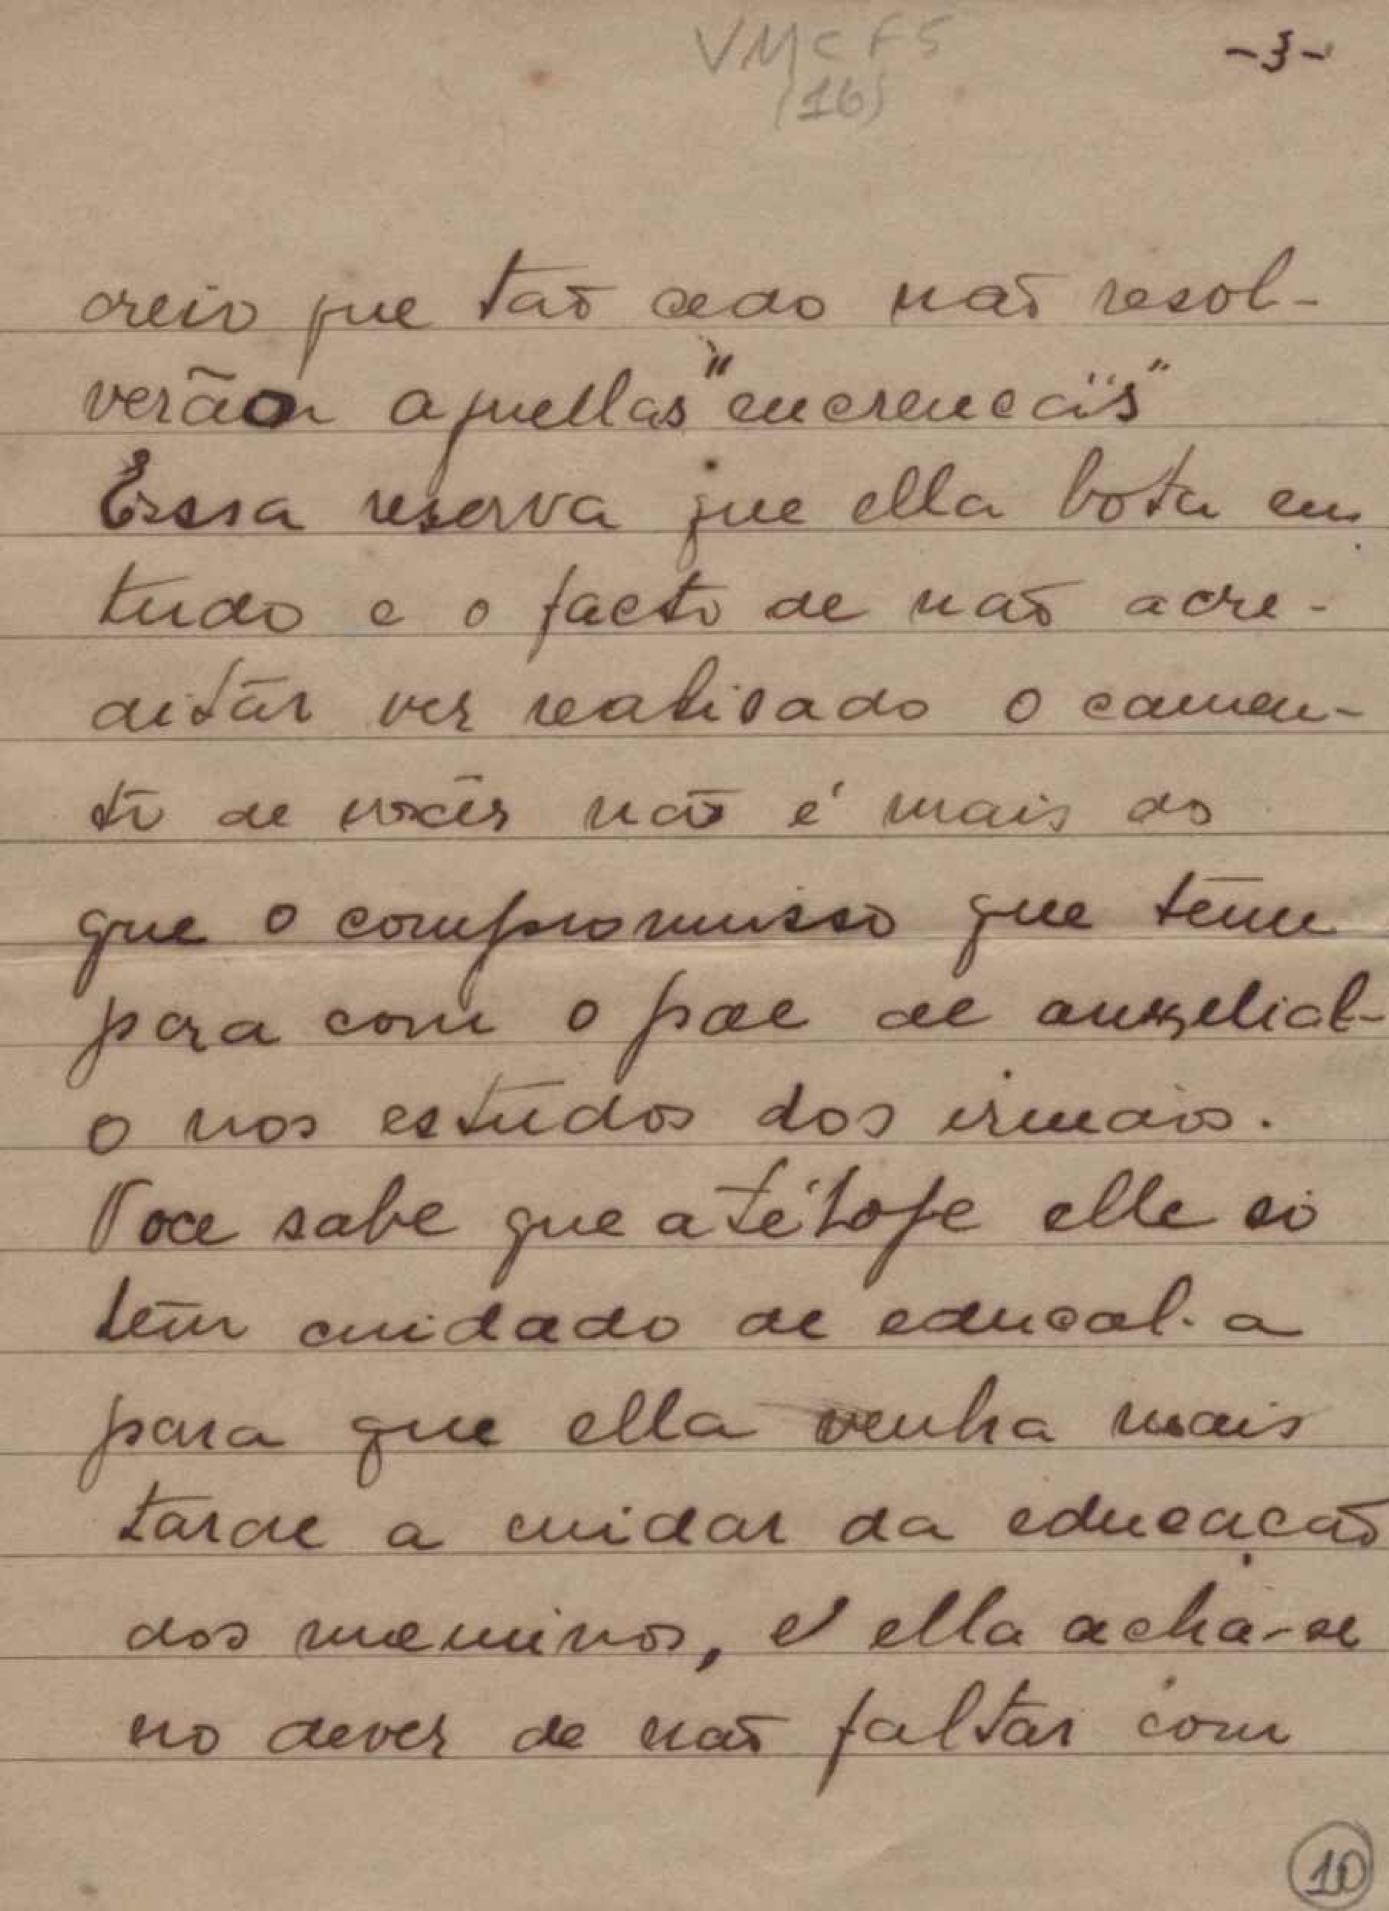 VMCF5
(16)
-3-
creio que tão cedo não resol-
verão aquellas "encrencas"
Essa reserva que ella bota em
tudo e o facto de não acre-
ditar ver realisado o casamen-
to de vocês não é mais do
que o compromisso que tem
para com o pae de auxelial-
o nos estudos dos irmãos.
Voce sabe que até hoje elle só
tem cuidado de educal-a
para que ella venha mais
tarde a cuidar da educação
dos meninos, e ella acha-se
no dever de não faltar com
10